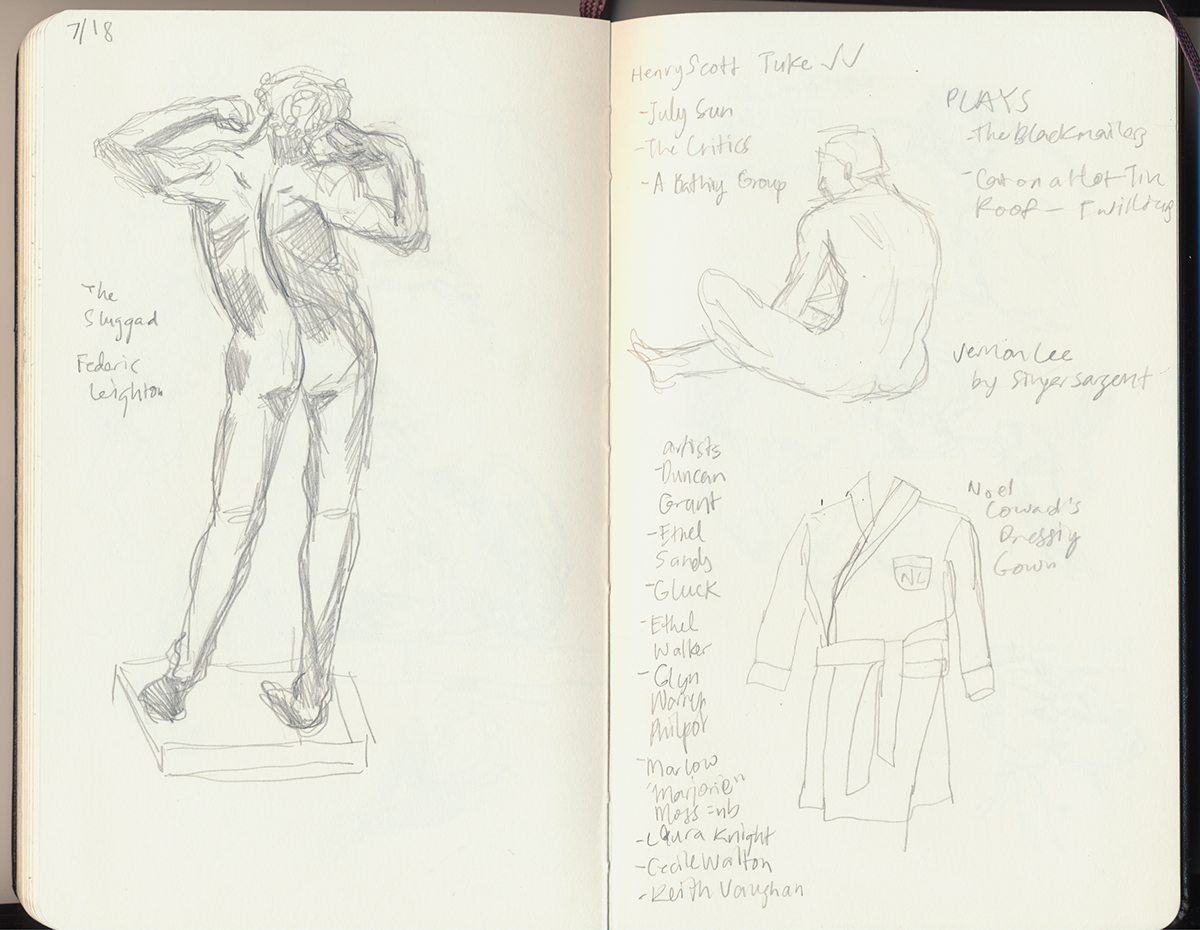 7/18
The
Sluggad
Federic
Leighton
Henry Scott Tuke ✓✓
- July Sun
- The Critics
- A Bathig Group
PLAYS
- The Blackmailers
- Cat on a Hot Tin
Roof -
Vernon Lee
by Singer Sargent
artists
- Duncan
Grant
- Ethel
Sands
- Gluck
- Ethel
Walker
- Glyn
Warren
Philpot
- Marlow
"Marjorie"
Moss = nb
- Laura Knight
- Cecile Walton
- Keith Vaughan
Noel
Coward's
Dressig
Gown
NC